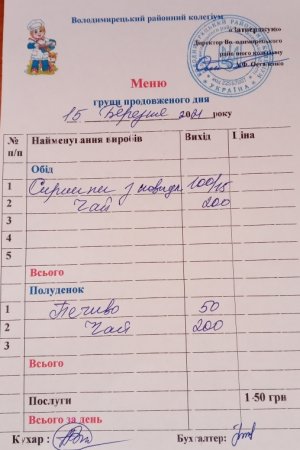 Володимирецький районний колегіум
«Затверджую»
Директор Володимирецького
районного колегіуму
Меню
групи продовженого дня
15 Березня 2021 року
№ п/п Найменування виробів Вихід Ціна
Обід
1 Сирники з повидл 100/15
2 Чай 200
3
4
5
Всього
Полуденок
1 Печиво 50
2 Чай 200
3
Всього
Послуги 1-50 грн
Всього за день
Кухар: Бухгалтер:
УКРАЇНА